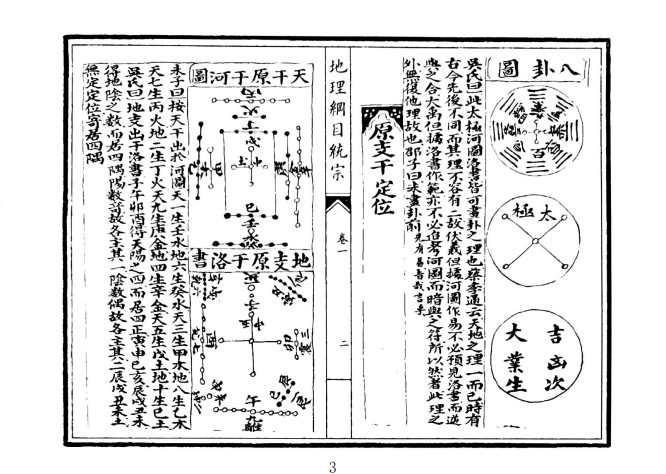 八卦圖
太極
吉凶次
大業生
吳氏曰此太極河圖洛書皆可畫卦之理也蔡季通云天地之理一而已時有
古今先後不同而其理不容有二故伏羲但據河圖作易不必預見洛書而逆
與之合大禹但據洛書作範亦不必追考河圖而暗與之符所以然者此理之
外無復他理故也邵子曰未畫卦前
先有易
原支干定位
地理綱目統宗
卷一
二
天干原于河圖
地支原于洛書
午
離
朱子曰按天干出於河圖天一生壬水地六生癸水天三生甲木地八生乙木
天七生丙火地二生丁火天九生庚金地四生辛金天五生戊土地十生己土
吳氏曰地支出于洛書子午卯酉得天陽之四而居四正寅申巳亥辰戌丑未
得地陰之數而居四隅陽數竒故各主其一陰數偶故各主其二辰戌丑未土
無定定位寄居四隅
3